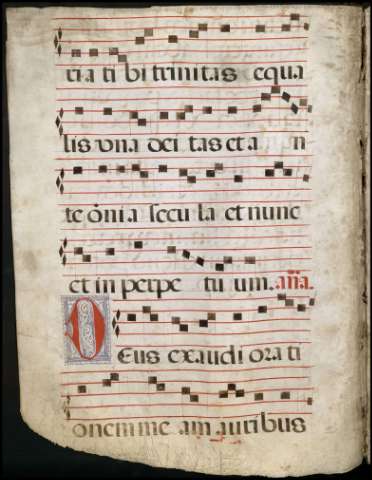 ria ti bi trinitas equa
lis vna dei tas et a n
te om̄ia secu la et nunc
et in perpe tu um. an̄a.
Deus exaudi ora ti
onem me am auribus